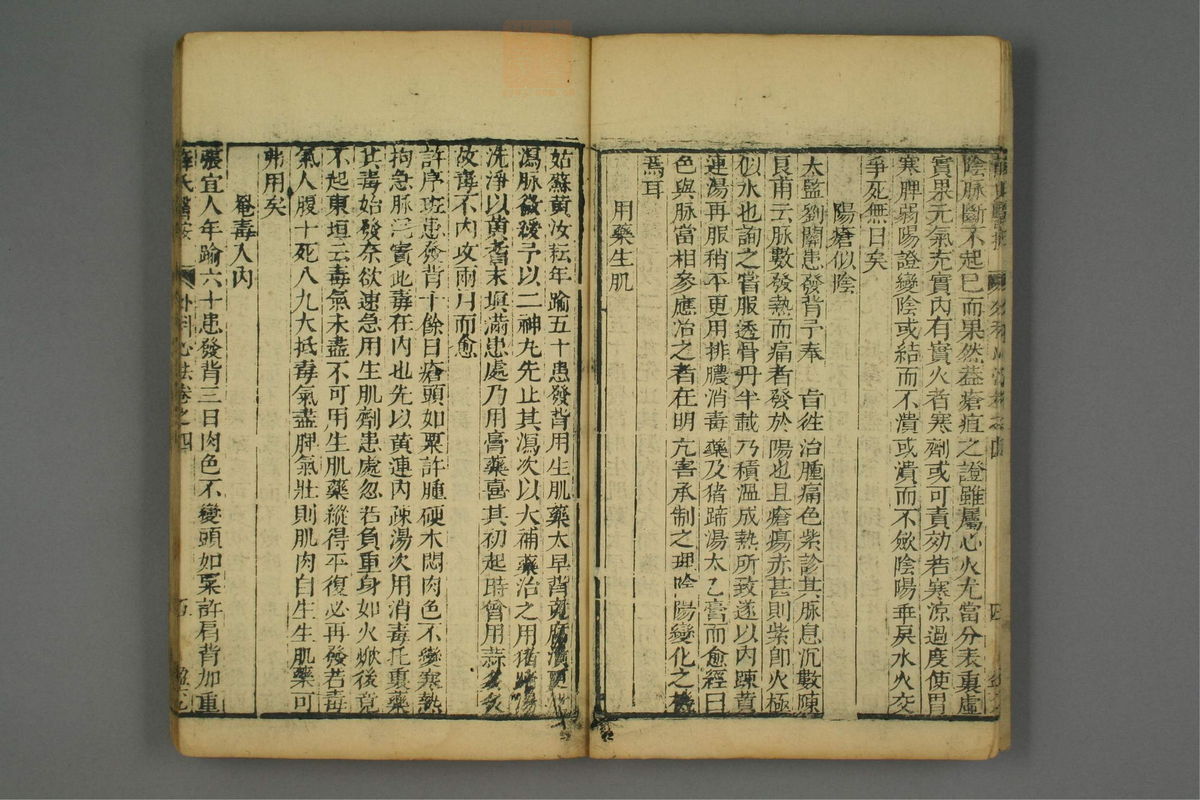 陰脉斷不起已而果然葢瘡疽之證雖屬心火尤當分表裏虛
實果元氣充實内有實火者寒劑或可責効若寒涼過度使胃
寒脾弱陽證變陰或結而不潰或潰而不斂陰陽乖戾水火交
爭死無日矣
陽瘡似陰
太監劉關患發背予奉　旨徃治腫痛色紫診其脉息沉數陳
良甫云脉數發熱而痛者發於陽也且瘡瘍赤甚則紫即火極
似水也詢之嘗服透骨丹半載乃積温成熱所致遂以内踈黄
連湯再服稍平更用排膿消毒藥及猪蹄湯太乙膏而愈經曰
色與脉當相參應治之者在明亢害承制之理陰陽變化之機
焉耳
用藥生肌
姑蘇黄汝耘年踰五十患發背用生肌藥太早背
瀉脉微緩予以二神丸先止其瀉次以大補藥治之用猪
洗淨以黄芪末填滿患處乃用膏藥喜其初起時曾用蒜灸
故毒不内攻兩月而愈
許序班患發背十餘日瘡頭如粟許腫硬木悶肉色不變寒熱
拘急脉沉實此毒在内也先以黄連内疎湯次用消毒托裏藥
其毒始發奈欲速急用生肌劑患處忽若負重身如火㷔後竟
不起東垣云毒氣未盡不可用生肌藥縱得平復必再發若毒
氣入腹十死八九大抵毒氣盡脾氣壯則肌肉自生生肌藥可
弗用矣
菴毒入内
張宜人年踰六十患發背三日肉色不變頭如粟許肩背加重
薛氏醫案　外科心法卷之四